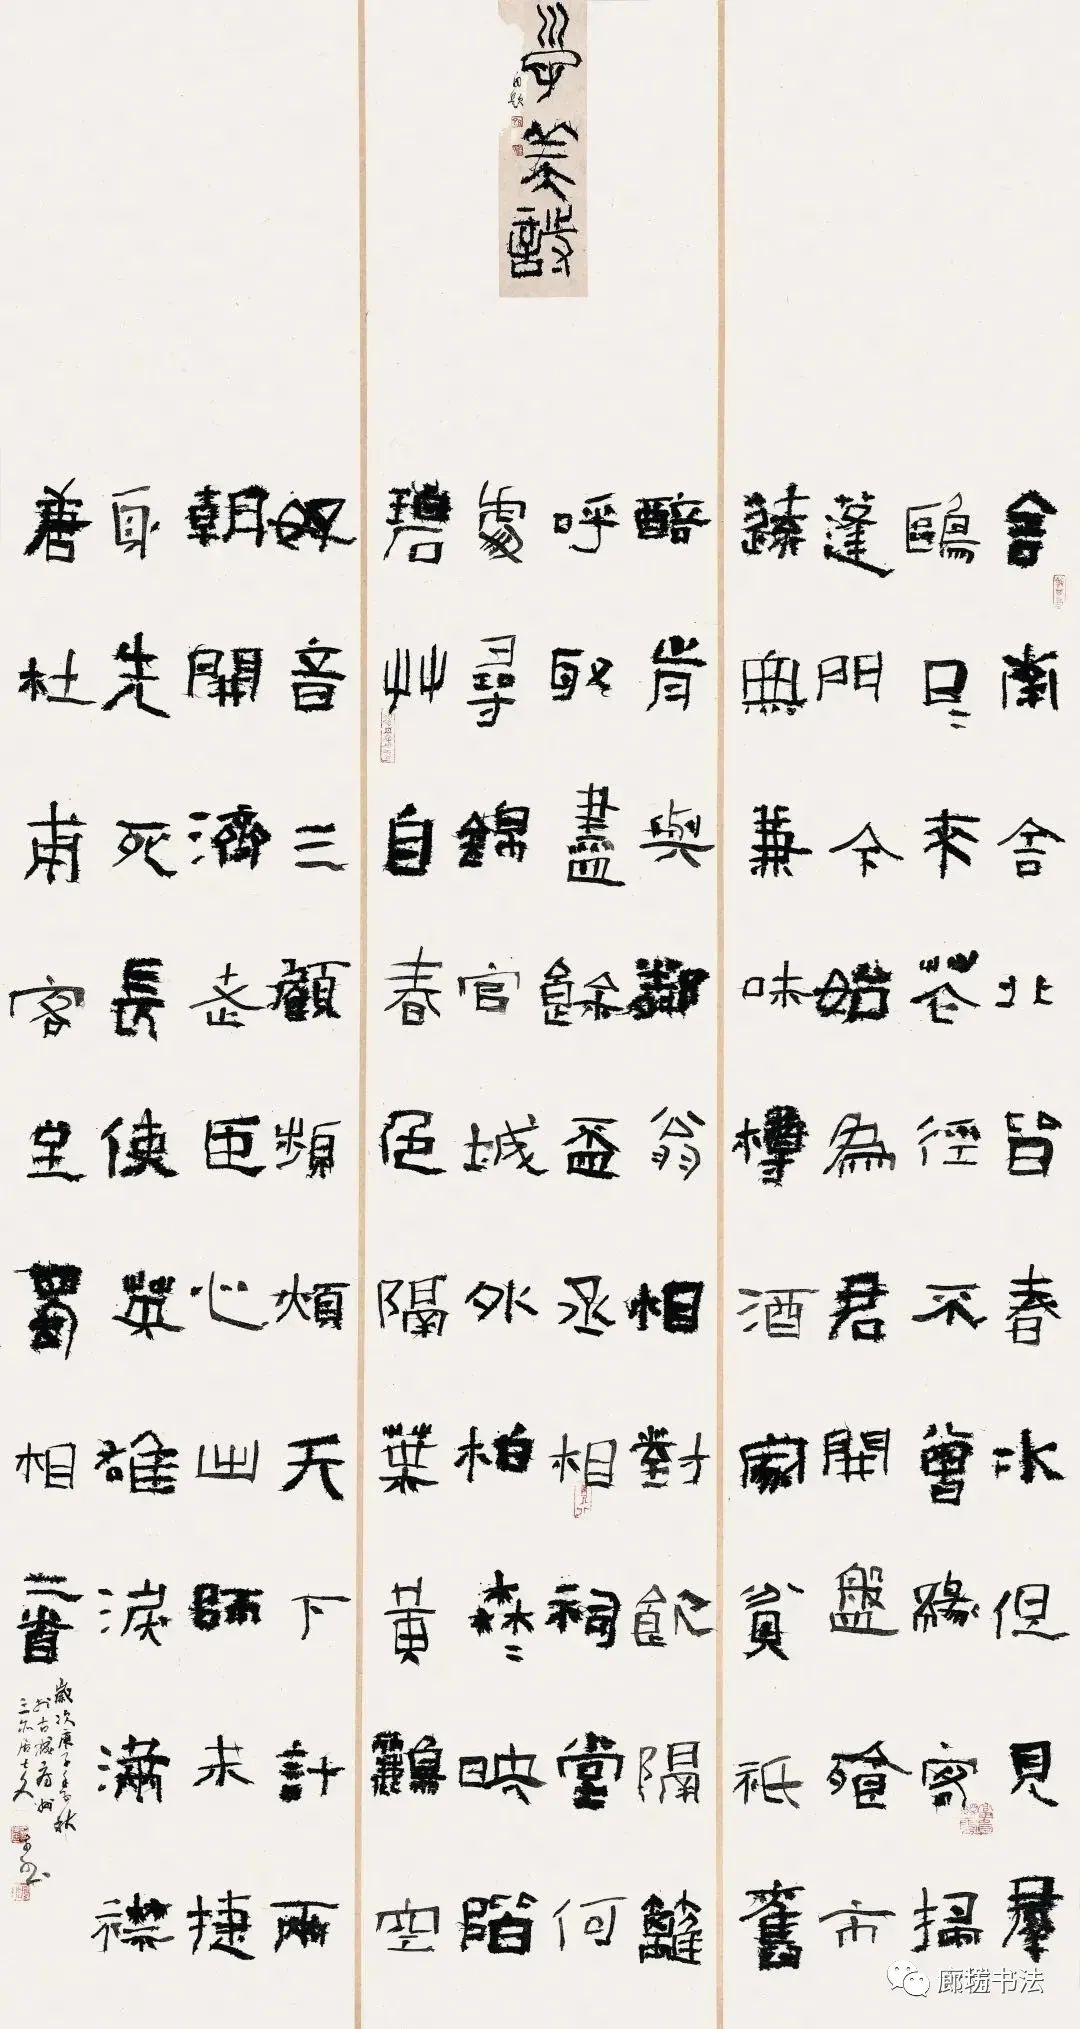 舍南舍北皆春水但見群
鷗日〻來花徑不曾緣客掃
蓬門今始為君開盤飧市
遠無兼味樽酒家貧祇舊
醅肯與鄰翁相對飲隔籬
呼取盡餘盃丞相祠堂何
處尋錦官城外柏森〻映階
碧艸自春色隔葉黃鸝空
好音三顧頻煩天下計兩
朝開濟老臣心出師未捷
身先死長使英雄淚滿襟
唐杜甫客至蜀相二首
歲次庚子季秋
书法